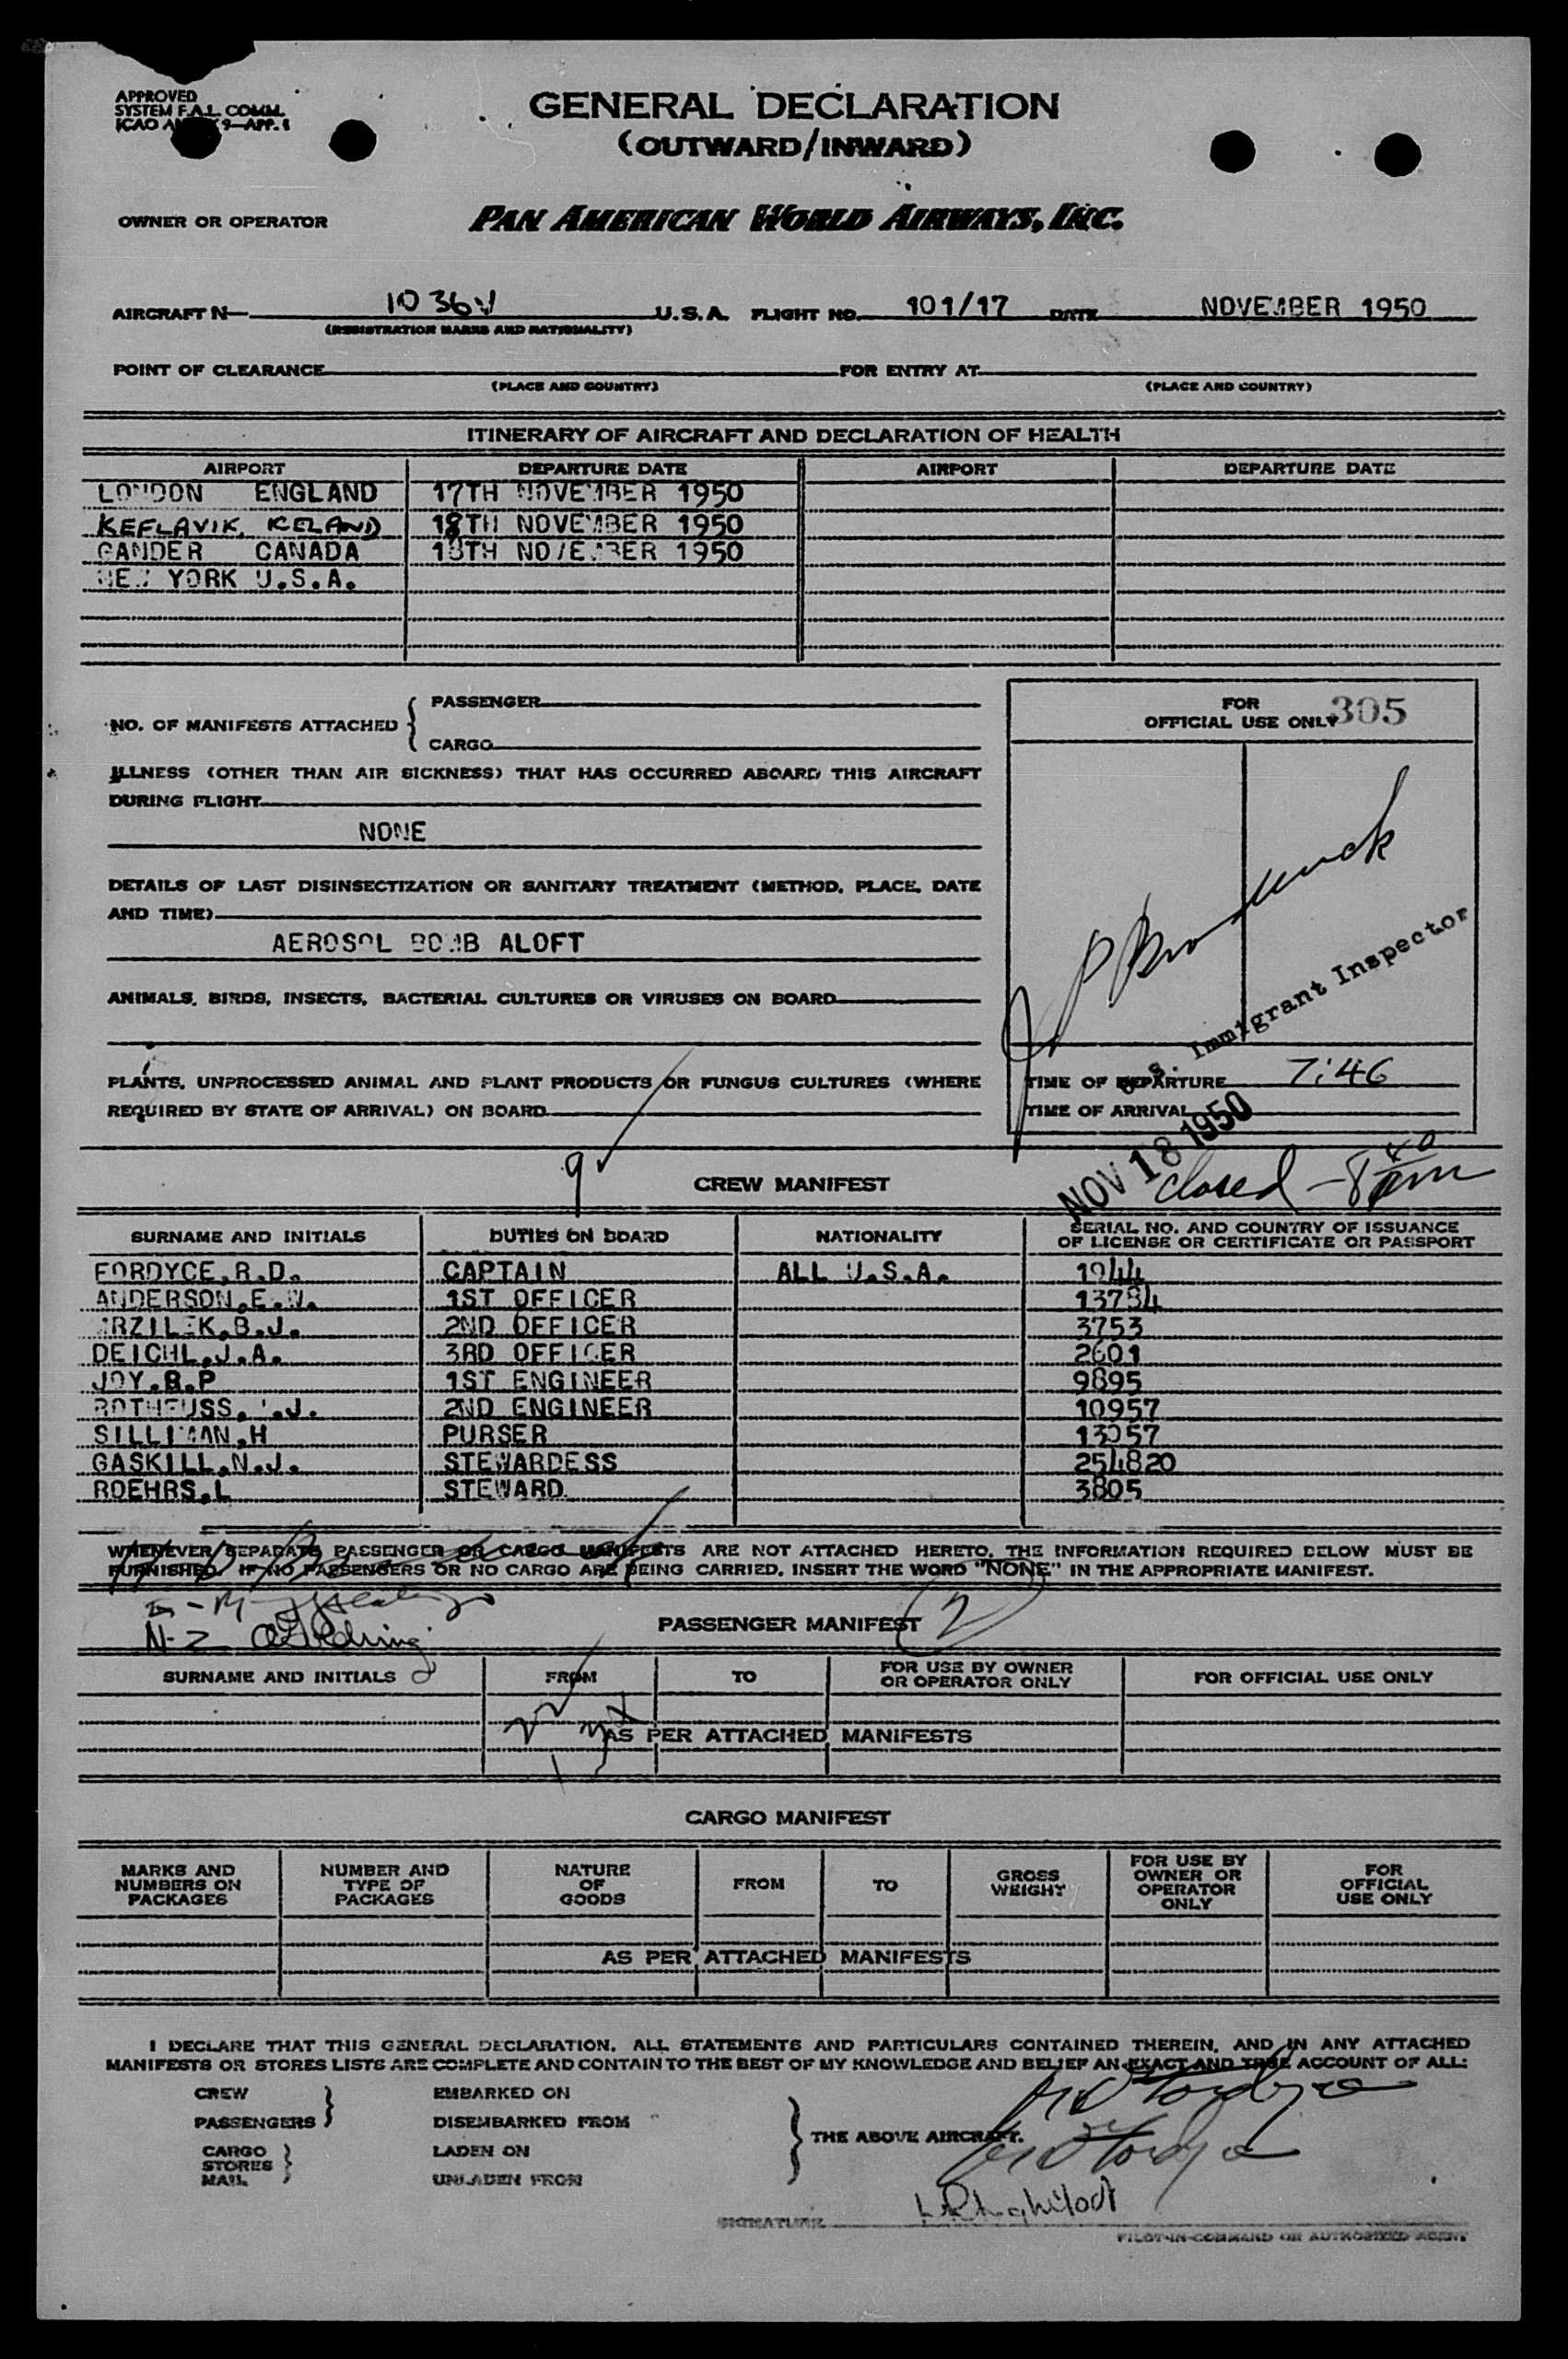 APPROVED
SYSTEM F.A.L. COMM.
ICAO 9—APP. 1
GENERAL DECLARATION
(OUTWARD/INWARD)
OWNER OR OPERATOR PAN AMERICAN WORLD AIRWAYS, INC.
AIRCRAFT N— 1036V U.S.A. FLIGHT NO. 101/17 DATE NOVEMBER 1950
(REGISTRATION MARKS AND NATIONALITY)
POINT OF CLEARANCE FOR ENTRY AT
(PLACE AND COUNTRY) (PLACE AND COUNTRY)
ITINERARY OF AIRCRAFT AND DECLARATION OF HEALTH
AIRPORT DEPARTURE DATE AIRPORT DEPARTURE DATE
LONDON ENGLAND 17TH NOVEMBER 1950
KEFLAVIK, ICELAND 18TH NOVEMBER 1950
GANDER CANADA 18TH NOVEMBER 1950
NEW YORK U.S.A.
NO. OF MANIFESTS ATTACHED { PASSENGER
CARGO
FOR
OFFICIAL USE ONLY 305
ILLNESS (OTHER THAN AIR SICKNESS) THAT HAS OCCURRED ABOARD THIS AIRCRAFT
DURING FLIGHT
NONE
DETAILS OF LAST DISINSECTIZATION OR SANITARY TREATMENT (METHOD, PLACE, DATE
AND TIME)
AEROSOL BOMB ALOFT
ANIMALS, BIRDS, INSECTS, BACTERIAL CULTURES OR VIRUSES ON BOARD
Immigrant Inspector
PLANTS, UNPROCESSED ANIMAL AND PLANT PRODUCTS OR FUNGUS CULTURES (WHERE
REQUIRED BY STATE OF ARRIVAL) ON BOARD
TIME OF DEPARTURE 7:46
TIME OF ARRIVAL
NOV 18 1950
closed - 8 40 pm
9
CREW MANIFEST
SURNAME AND INITIALS DUTIES ON BOARD NATIONALITY SERIAL NO. AND COUNTRY OF ISSUANCE
OF LICENSE OR CERTIFICATE OR PASSPORT
FORDYCE.R.D. CAPTAIN ALL U.S.A. 1944
ANDERSON.E.W. 1ST OFFICER 13784
2ND OFFICER 3753
DEICHL.J.A. 3RD OFFICER 2601
JOY.B.P 1ST ENGINEER 9895
2ND ENGINEER 10957
SILLIMAN.H PURSER 13957
GASKILL.N.J. STEWARDESS 254820
ROEHRS.L STEWARD 3805
WHENEVER SEPARATE PASSENGER OR CARGO MANIFESTS ARE NOT ATTACHED HERETO, THE INFORMATION REQUIRED BELOW MUST BE
FURNISHED. IF NO PASSENGERS OR NO CARGO ARE BEING CARRIED, INSERT THE WORD "NONE" IN THE APPROPRIATE MANIFEST.
N-2
PASSENGER MANIFEST (2)
SURNAME AND INITIALS FROM TO FOR USE BY OWNER
OR OPERATOR ONLY FOR OFFICIAL USE ONLY
AS PER ATTACHED MANIFESTS
CARGO MANIFEST
MARKS AND
NUMBERS ON
PACKAGES NUMBER AND
TYPE OF
PACKAGES NATURE
OF
GOODS FROM TO GROSS
WEIGHT FOR USE BY
OWNER OR
OPERATOR
ONLY FOR
OFFICIAL
USE ONLY
AS PER ATTACHED MANIFESTS
I DECLARE THAT THIS GENERAL DECLARATION, ALL STATEMENTS AND PARTICULARS CONTAINED THEREIN, AND IN ANY ATTACHED
MANIFESTS OR STORES LISTS ARE COMPLETE AND CONTAIN TO THE BEST OF MY KNOWLEDGE AND BELIEF AN EXACT AND TRUE ACCOUNT OF ALL:
CREW EMBARKED ON
PASSENGERS } DISEMBARKED FROM
CARGO LADEN ON } THE ABOVE AIRCRAFT.
STORES }
MAIL UNLADEN FROM
SIGNATURE
PILOT-IN-COMMAND OR AUTHORIZED AGENT